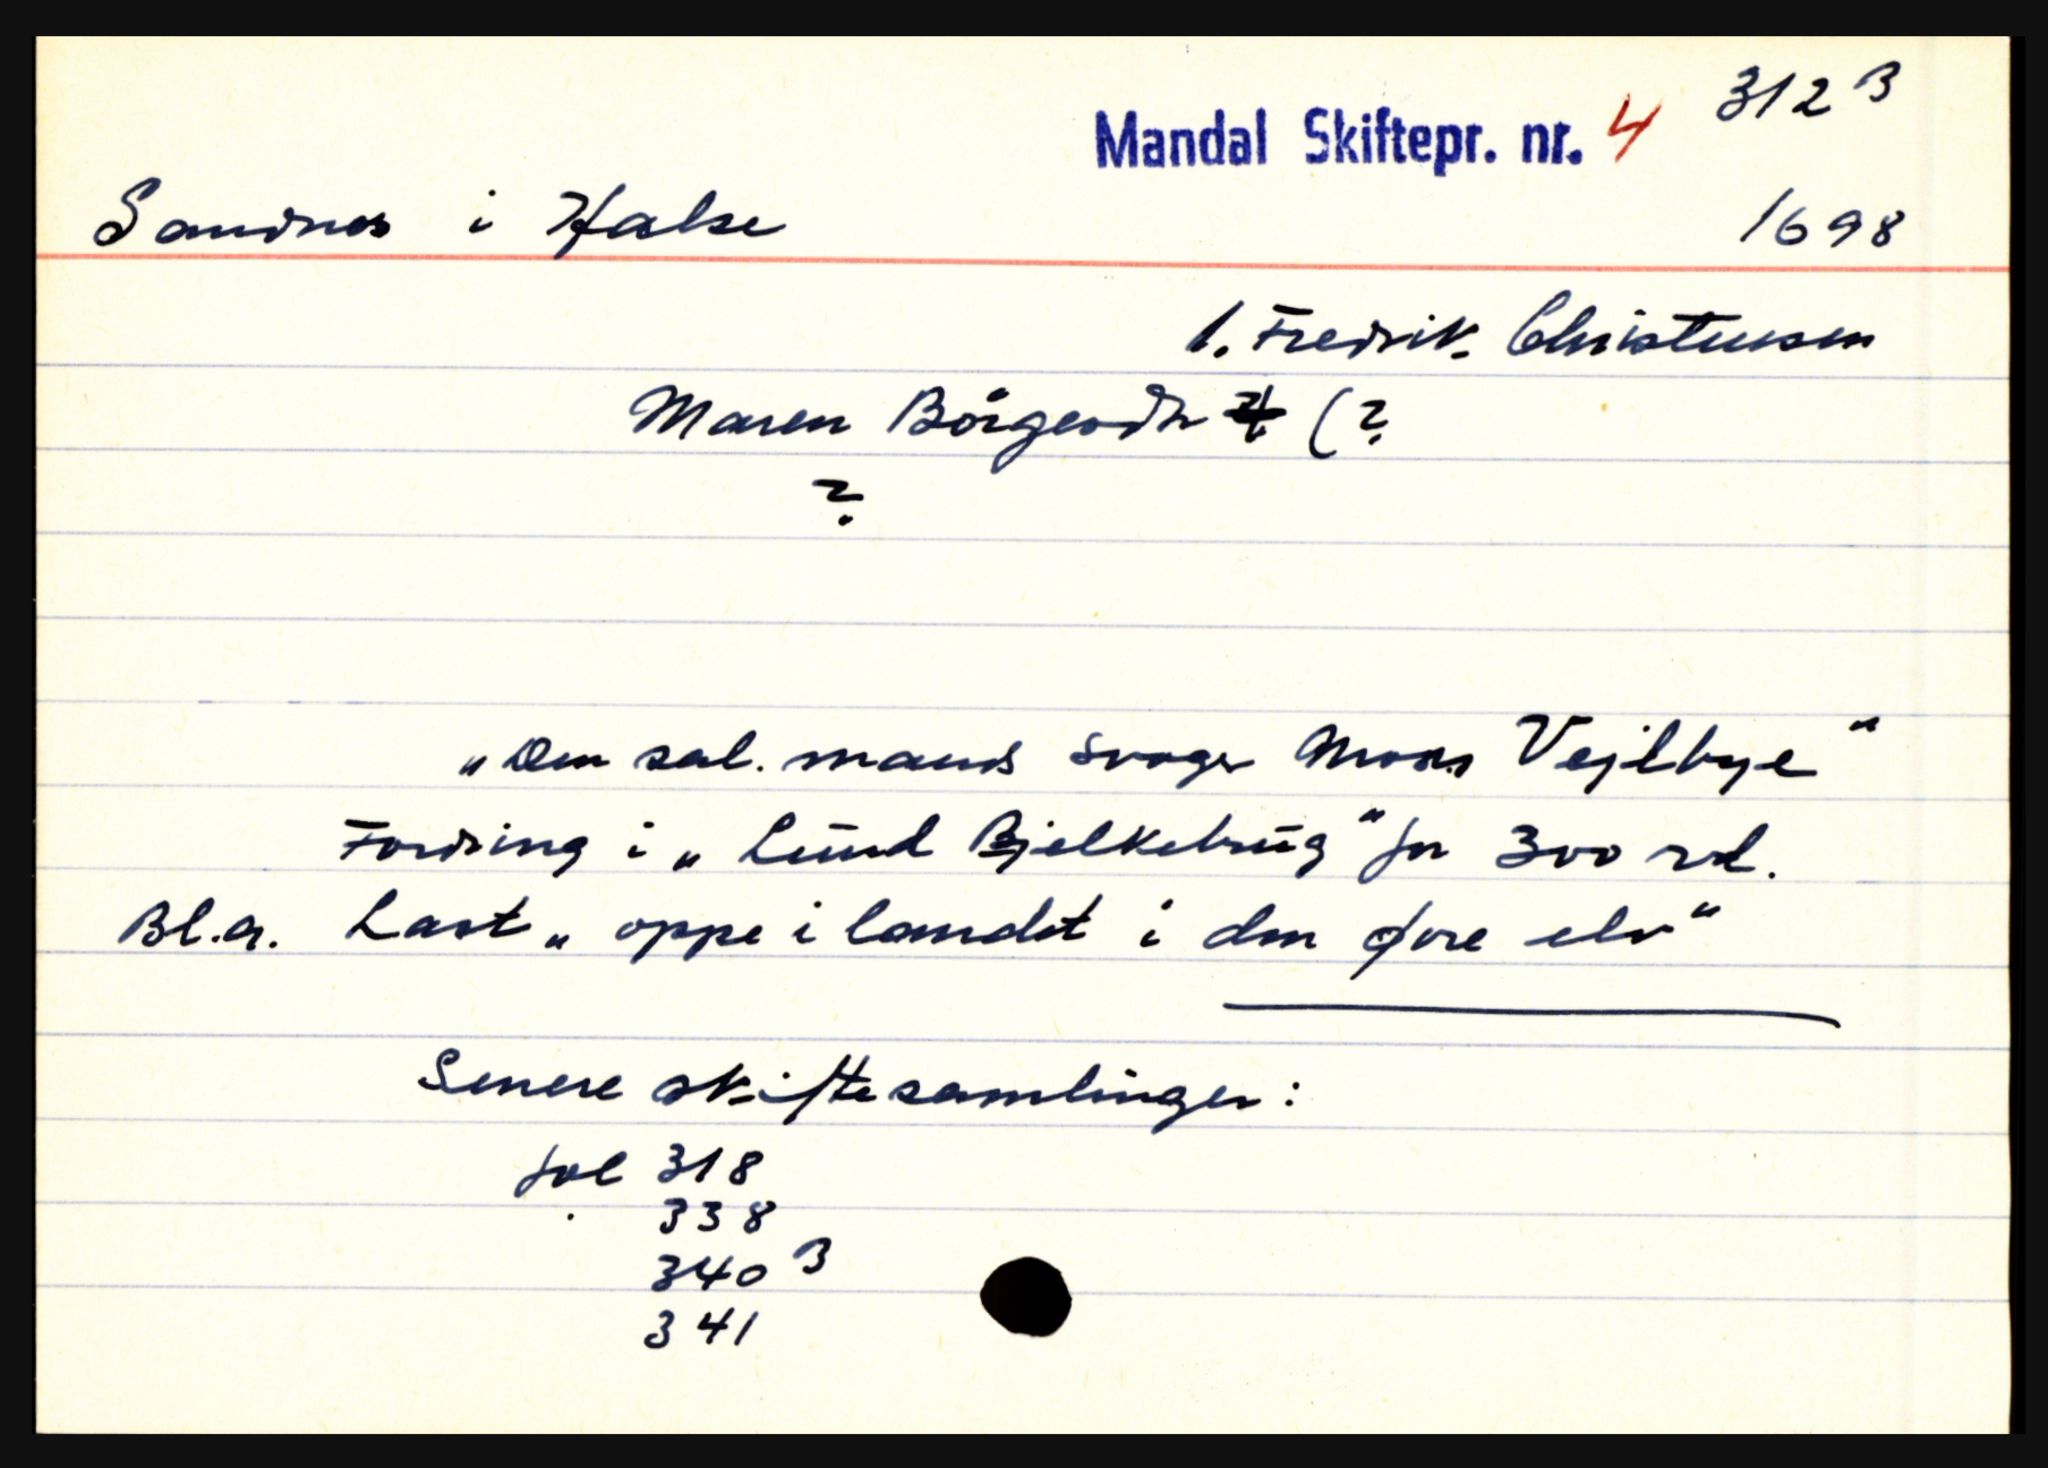 312 B
Mandal Skiftepr. nr. 4
Sandnes i Halse 1698
1. Fredrik Christensen
Maren Börgesdtr (?
?
„Den sal. mands svoger Mons Vejlbye“
Fordring i „Lund Bjelkebrug“ for 300 rd.
Bl.a. Last „oppe i landet i den øvre elv“
Senere skiftesamlinger:
fol 318
338
340 B
341